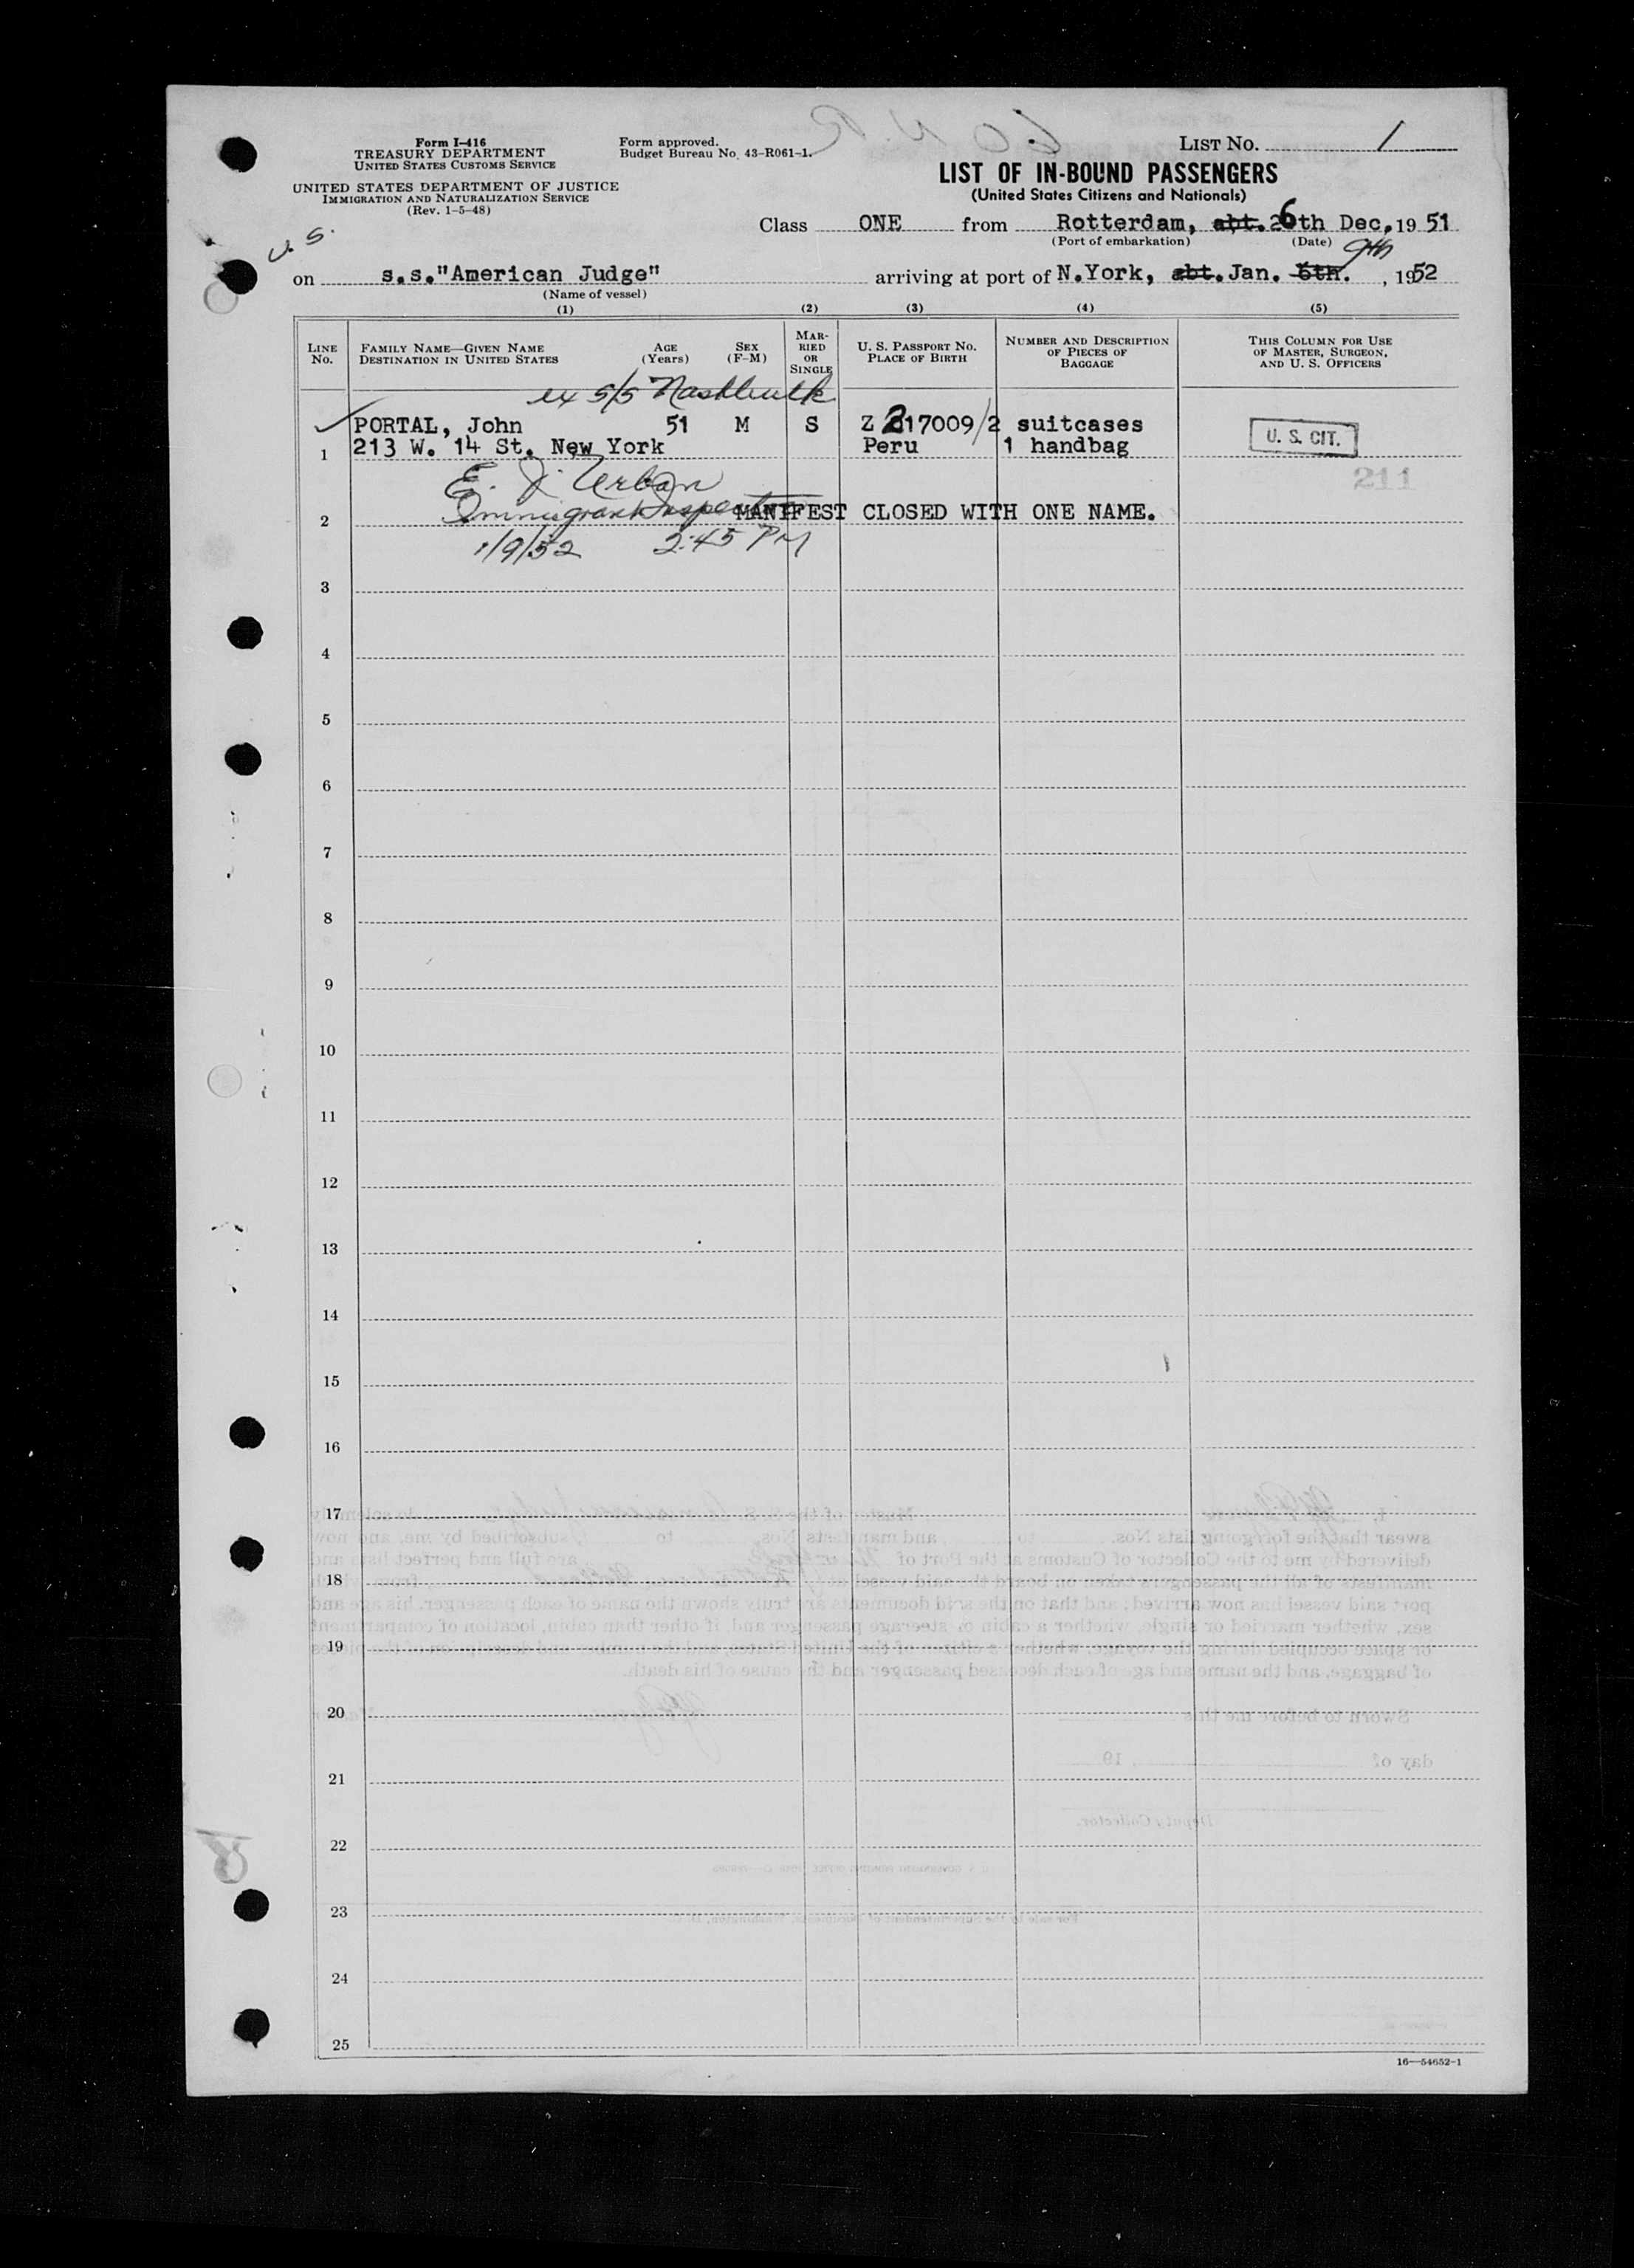 Form I-416
TREASURY DEPARTMENT
UNITED STATES CUSTOMS SERVICE
UNITED STATES DEPARTMENT OF JUSTICE
IMMIGRATION AND NATURALIZATION SERVICE
(Rev. 1-5-48)
Form approved.
Budget Bureau No. 43-R061-1.
LIST NO. 1
LIST OF IN-BOUND PASSENGERS
(United States Citizens and Nationals)
Class ONE from Rotterdam, abt. 26th Dec, 1951
(Port of embarkation) (Date)
U. S.
9th
on s.s."American Judge" arriving at port of N.York, abt. Jan. 6th. , 1952
(Name of vessel)
(1) (2) (3) (4) (5)
LINE NO.
FAMILY NAME—GIVEN NAME
DESTINATION IN UNITED STATES
AGE (Years)
SEX (F-M)
MARRIED OR SINGLE
U. S. PASSPORT NO.
PLACE OF BIRTH
NUMBER AND DESCRIPTION OF PIECES OF BAGGAGE
THIS COLUMN FOR USE OF MASTER, SURGEON, AND U. S. OFFICERS
ex S/S
PORTAL, John 51 M S Z 317009/2 suitcases
1 213 W. 14 St. New York Peru 1 handbag
U. S. CIT.
211
E. J. Urban
Immigrant Inspector
2 MANIFEST CLOSED WITH ONE NAME.
1/9/52 2:45 PM
3
4
5
6
7
8
9
10
11
12
13
14
15
16
17
18
19
20
21
22
23
24
25
16—54652-1